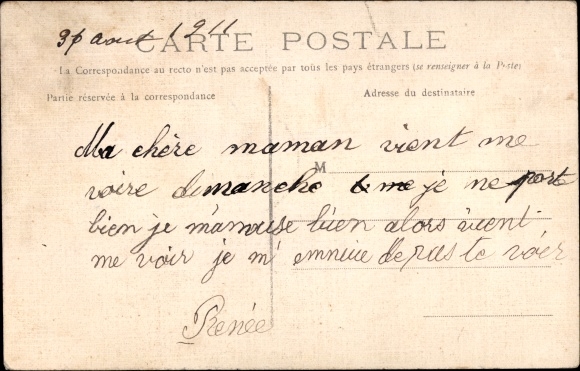 août 1911
CARTE POSTALE
La Correspondance au recto n'est pas acceptée par tous les pays étrangers (se renseigner à la Poste)
Partie réservée à la correspondance
Adresse du destinataire
Ma chère maman vient me
M
voire dimanche je me port
bien je m'amuse bien alors vient
me voir je m' ennuie de pas te voir
Renée